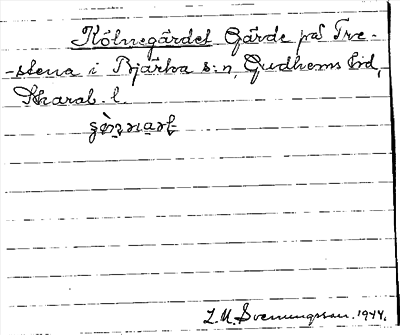 Kölnegärdet Gärde på Tre-
-stena i Bjärka s:n, Gudhems hd,
Skarab. l.
L. M. Svenungsson. 1944.